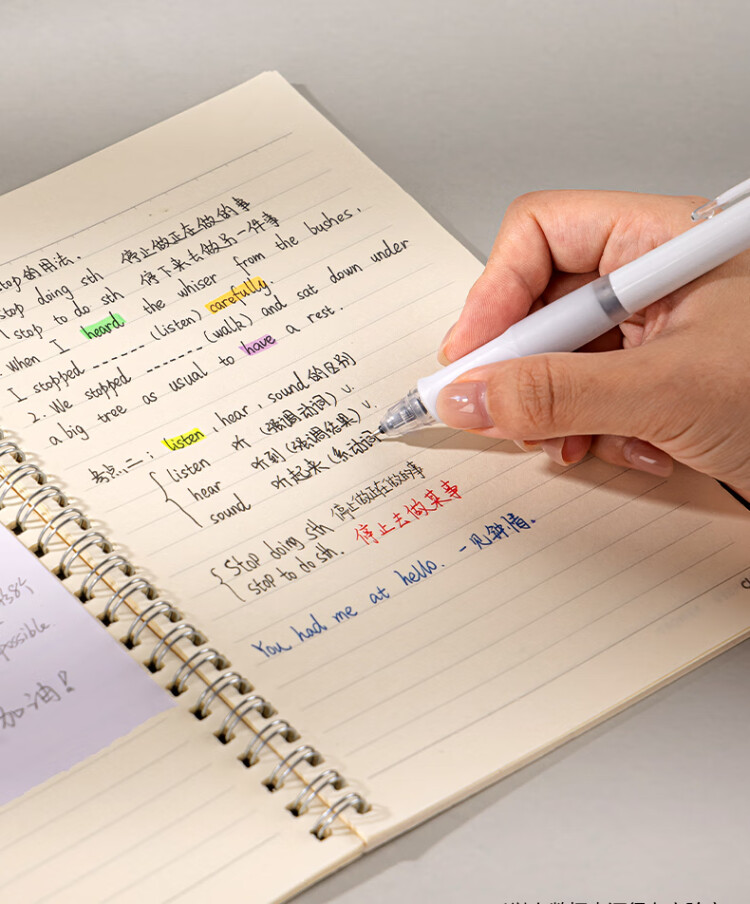 stop的用法.
stop doing sth 停止做正在做的事
stop to do sth 停下来去做另一件事
. When I heard the whiser from the bushes,
I stopped ------ (listen) carefully.
2. We stopped ------ (walk) and sat down under
a big tree as usual to have a rest.
考点二: listen, hear, sound的区别
listen 听 (强调动词) v.
hear 听到 (强调结果) v.
sound 听起来 (系动词
Stop doing sth 停止做正在做的事
stop to do sth. 停止去做某事
You had me at hello. 一见钟情.
possible
加油!